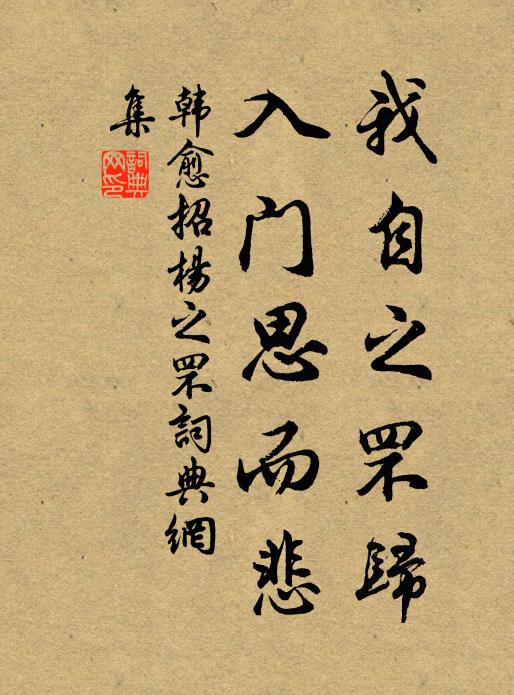 我自之罘歸
入门思而悲
韩愈招楊之罘詞典網
集
詞典
网印